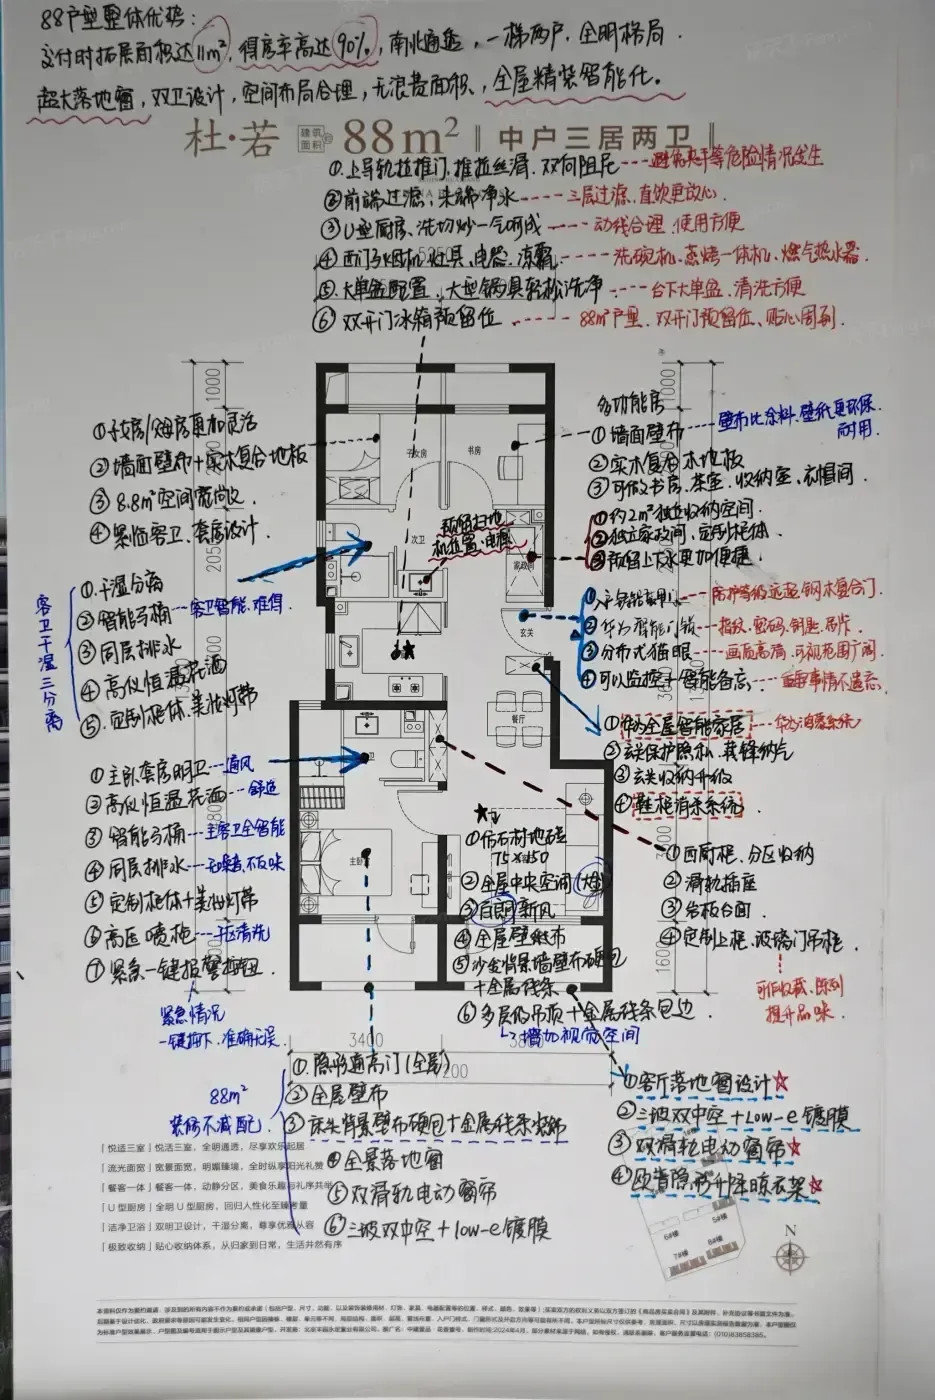 88户型整体优势:
交付时拓展面积达11m², 得房率高达90%, 南北通透, 一梯两户, 全明格局.
超大落地窗, 双卫设计, 空间布局合理, 无浪费面积, 全屋精装智能化.
杜·若 建筑面积约 88m² 中户三居两卫
①上导轨拉推门, 推拉丝滑, 双向阻尼---避免夹手等危险情况发生
②前端过滤, 末端净水----三层过滤, 直饮更放心.
③U型厨房、洗切炒一气呵成----动线合理, 使用方便
④西门子烟机灶具、电器、凉霸----洗碗机、蒸烤一体机、燃气热水器.
⑤大单盆配置、大型锅具轻松洗净----台下大单盆、清洗方便
⑥双开门冰箱预留位----88m²户型、双开门预留位、贴心周到.
1000
1000
①子女房/父母房更加灵活
②墙面壁布+实木复合地板
③8.8m²空间宽尚改.
④紧临客卫、套房设计.
子女房
书房
多功能房
①墙面壁布---壁布比涂料、壁纸更环保耐用.
②实木复合木地板
③可做书房、茶室、收纳室、衣帽间.
①约2m²独立收纳空间.
②独立家政间, 定制柜体.
③预留上下水更加便捷.
次卫
预留扫地
机位置、电源
家政间
205
客卫干湿三分离
①干湿分离
②智能马桶---客卫智能、难得.
③同层排水
④高仪恒温花洒
⑤定制柜体、美妆灯带
玄关
防护等级远超钢木复合门
②华为智能门锁---指纹、密码、钥匙、吊卡.
③分布式猫眼---画质高清、可视范围广阔.
④可以监控+智能备忘.---重要事情不遗忘.
餐厅
①华为全屋智能家居---华为鸿蒙系统
②玄关保护隐私、藏锋纳气
③玄关收纳升级
④鞋柜消杀系统.
①主卧套房明卫---通风
②高仪恒温花洒---舒适
③智能马桶---主客卫全智能
④同层排水---无噪音、不反味
⑤定制柜体+美妆灯带
⑥高压喷枪---下压清洗
⑦紧急一键报警按钮.
紧急情况
一键按下、准确无误.
主卧
①仿石材地砖
75×150
②全屋中央空调(大金)
③百朗新风
④全屋壁纸布
⑤沙金背景墙壁布硬包
+金属线条
⑥多层级吊顶+金属线条包边.
增加视觉空间
①西厨柜、分区收纳
②滑轨插座
③岩板台面.
④定制上柜、玻璃门吊柜.
可做收藏、陈列
提升品味.
1600
3400
88m²
装修不减配
①隐形通高门(全屋)
②全屋壁布
③床头背景壁布硬包+金属线条装饰
④全景落地窗
⑤双滑轨电动窗帘
⑥三玻双中空+low-e镀膜
①客厅落地窗设计☆
②三玻双中空+Low-e镀膜
③双滑轨电动窗帘☆
④欧普隐形升降晾衣架☆
「悦适三室」悦活三室, 全明通透, 尽享欢乐起居
「流光面宽」宽景面宽, 明媚臻境, 全时纵享阳光礼赞
「餐客一体」餐客一体, 动静分区, 美食乐趣与礼序共举
「U型厨房」全明U型厨房, 回归人性化至臻考量
「洁净卫浴」双明卫设计, 干湿分离, 尊享优雅从容
「极致收纳」贴心收纳体系, 从归家到日常, 生活井然有序
5#楼
6#楼
7#楼
8#楼
N